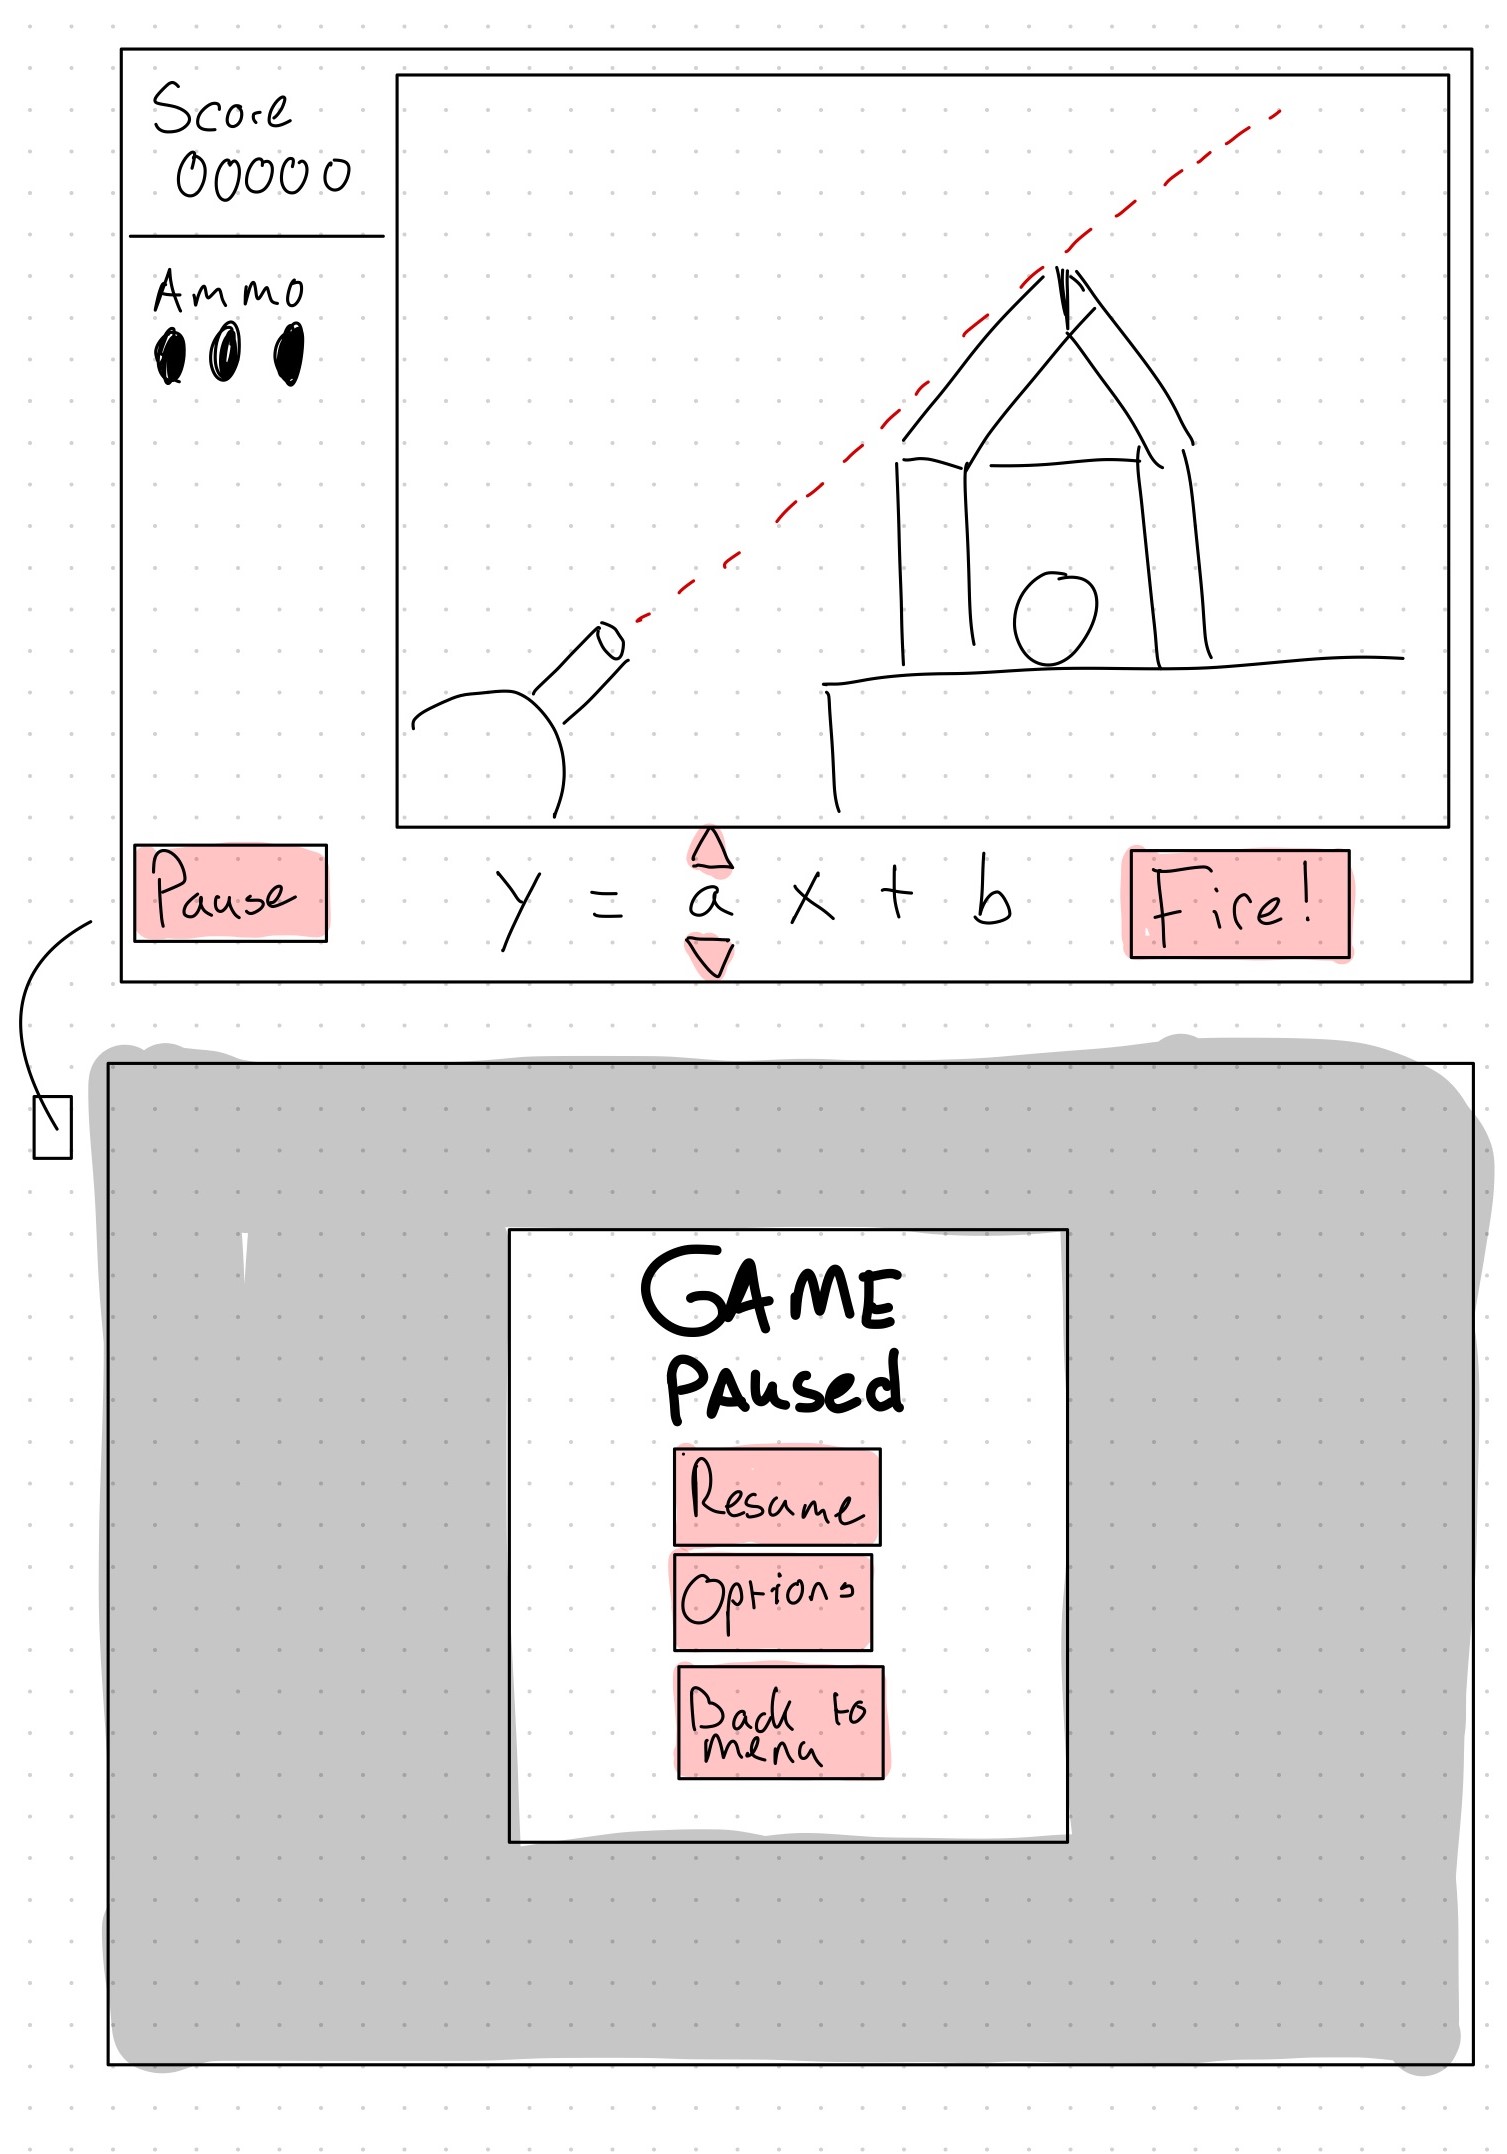 Score
00000
Ammo
Pause
y = a x + b
Fire!
GAME
PAused
Resume
Options
Back to
menu